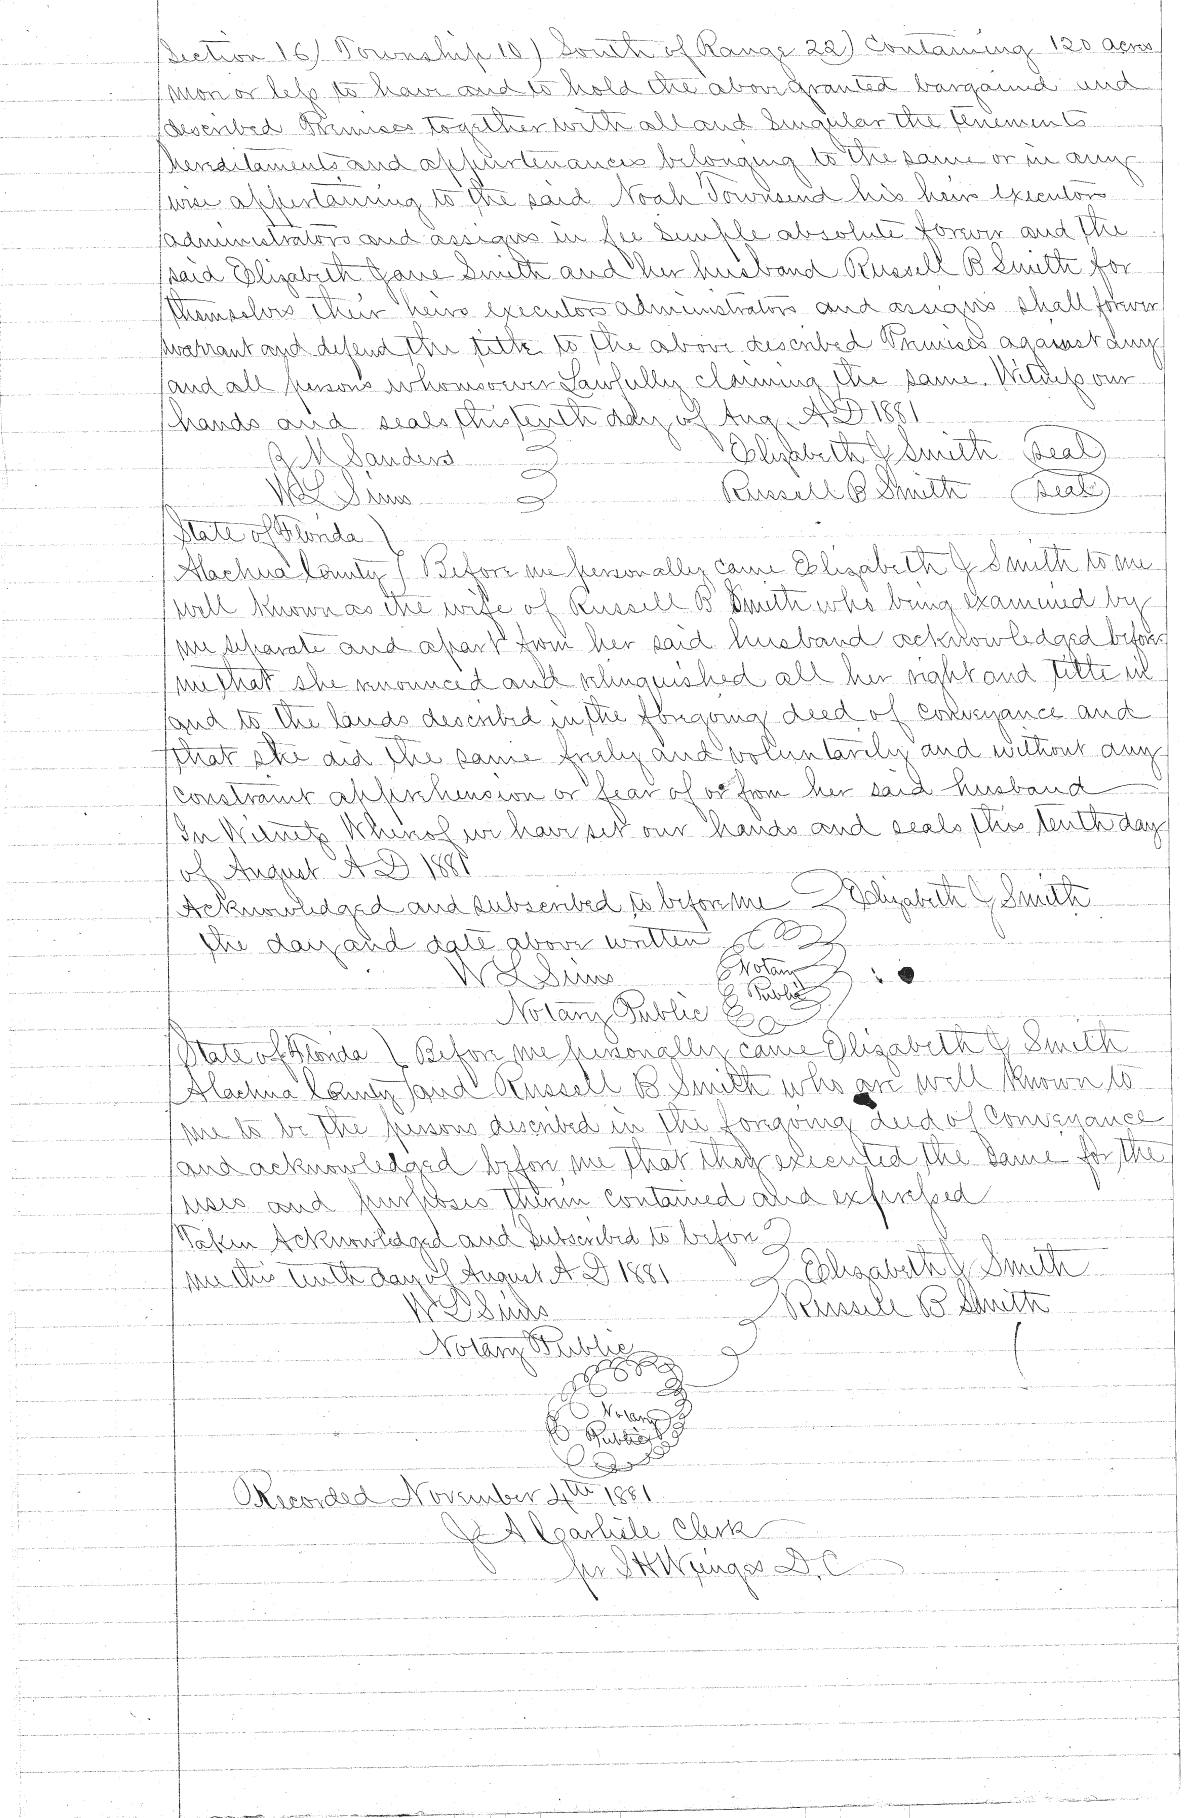 Section 16) Township 10) South of Range 22) Containing 120 acres
more or less to have and to hold the above granted bargained and
described Premises together with all and Singular the tenements
hereditaments and appurtenances belonging to the same or in any
wise appertaining to the said Noah Townsend his heirs executors
administrators and assigns in fee Simple absolute forever and the
said Elizabeth Jane Smith and her husband Russell B Smith for
themselves their heirs executors administrators and assigns shall forever
warrant and defend the title to the above described Premises against any
and all persons whomsoever Lawfully claiming the same. Witness our
hands and seals this tenth day of Aug. A D 1881
M Sanders Elizabeth J Smith (seal)
W L Sims Russell B Smith (seal)
State of Florida )
Alachua County ( Before me personally came Elizabeth J Smith to me
well known as the wife of Russell B Smith who being examined by
me separate and apart from her said husband acknowledged before
me that she renounced and relinquished all her right and title in
and to the lands described in the foregoing deed of conveyance and
that she did the same freely and voluntarily and without any
constraint apprehension or fear of or from her said husband
In Witness Whereof we have set our hands and seals this tenth day
of August A D 1881
Acknowledged and subscribed to before me Elizabeth J Smith
the day and date above written
W L Sims Notary
Notary Public Public
State of Florida ) Before me personally came Elizabeth J Smith
Alachua County ) and Russell B Smith who are well known to
me to be the persons described in the foregoing deed of Conveyance
and acknowledged before me that they executed the Same for the
uses and purposes therein contained and expressed
Taken Acknowledged and Subscribed to before
me this tenth day of August A D 1881 Elizabeth J Smith
W L Sims Russell B Smith
Notary Public
Notary
Public
Recorded November 4th 1881
J A Carlisle Clerk
per S H Wienges D. C